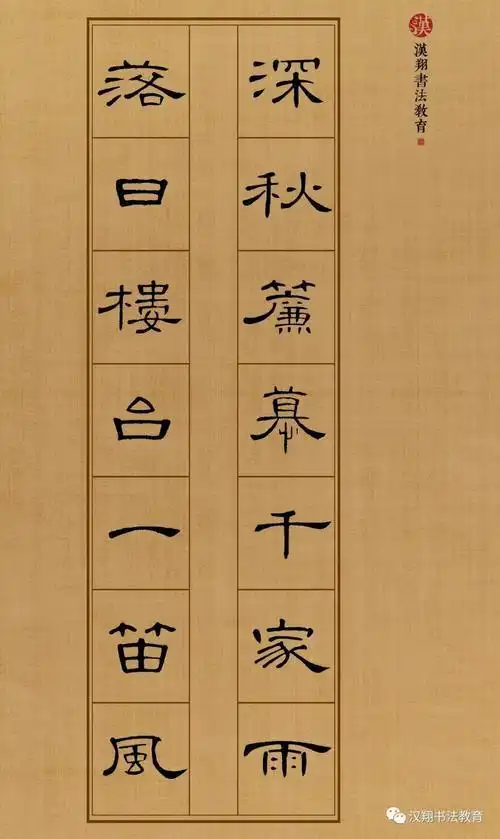 漢
漢翔書法教育
深秋簾幕千家雨
落日樓台一笛風
汉翔书法教育